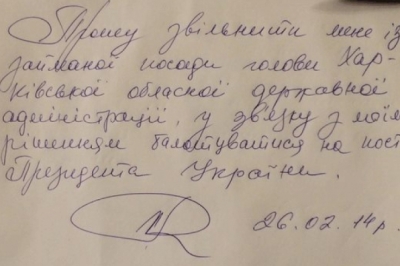 Прошу звільнити мене із
займаної посади голови Хар-
ківської обласної державної
адміністрації, у зв'язку з моїм
рішенням балотуватися на пост
Президента України.
26.02.14р.